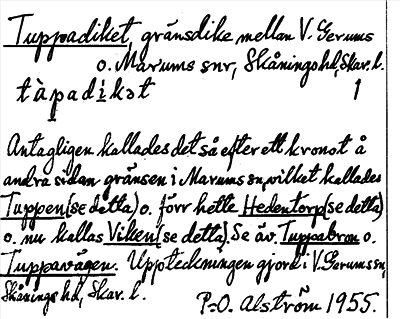 Tuppadiket, gränsdike mellan V. Gerums
o. Marums snr, Skånings hd, Skar. l.
tàpadìkət 1
Antagligen kallades det så efter ett kronot å
andra sidan gränsen i Marums sn, vilket kallades
Tuppen (se detta) o. förr hette Hedentorp (se detta)
o. nu kallas Viken (se detta). Se äv. Tuppabron o.
Tuppavägen. Uppteckningen gjord i V. Gerums sn,
Skånings hd, Skar. l.
P.-O. Alström 1955.